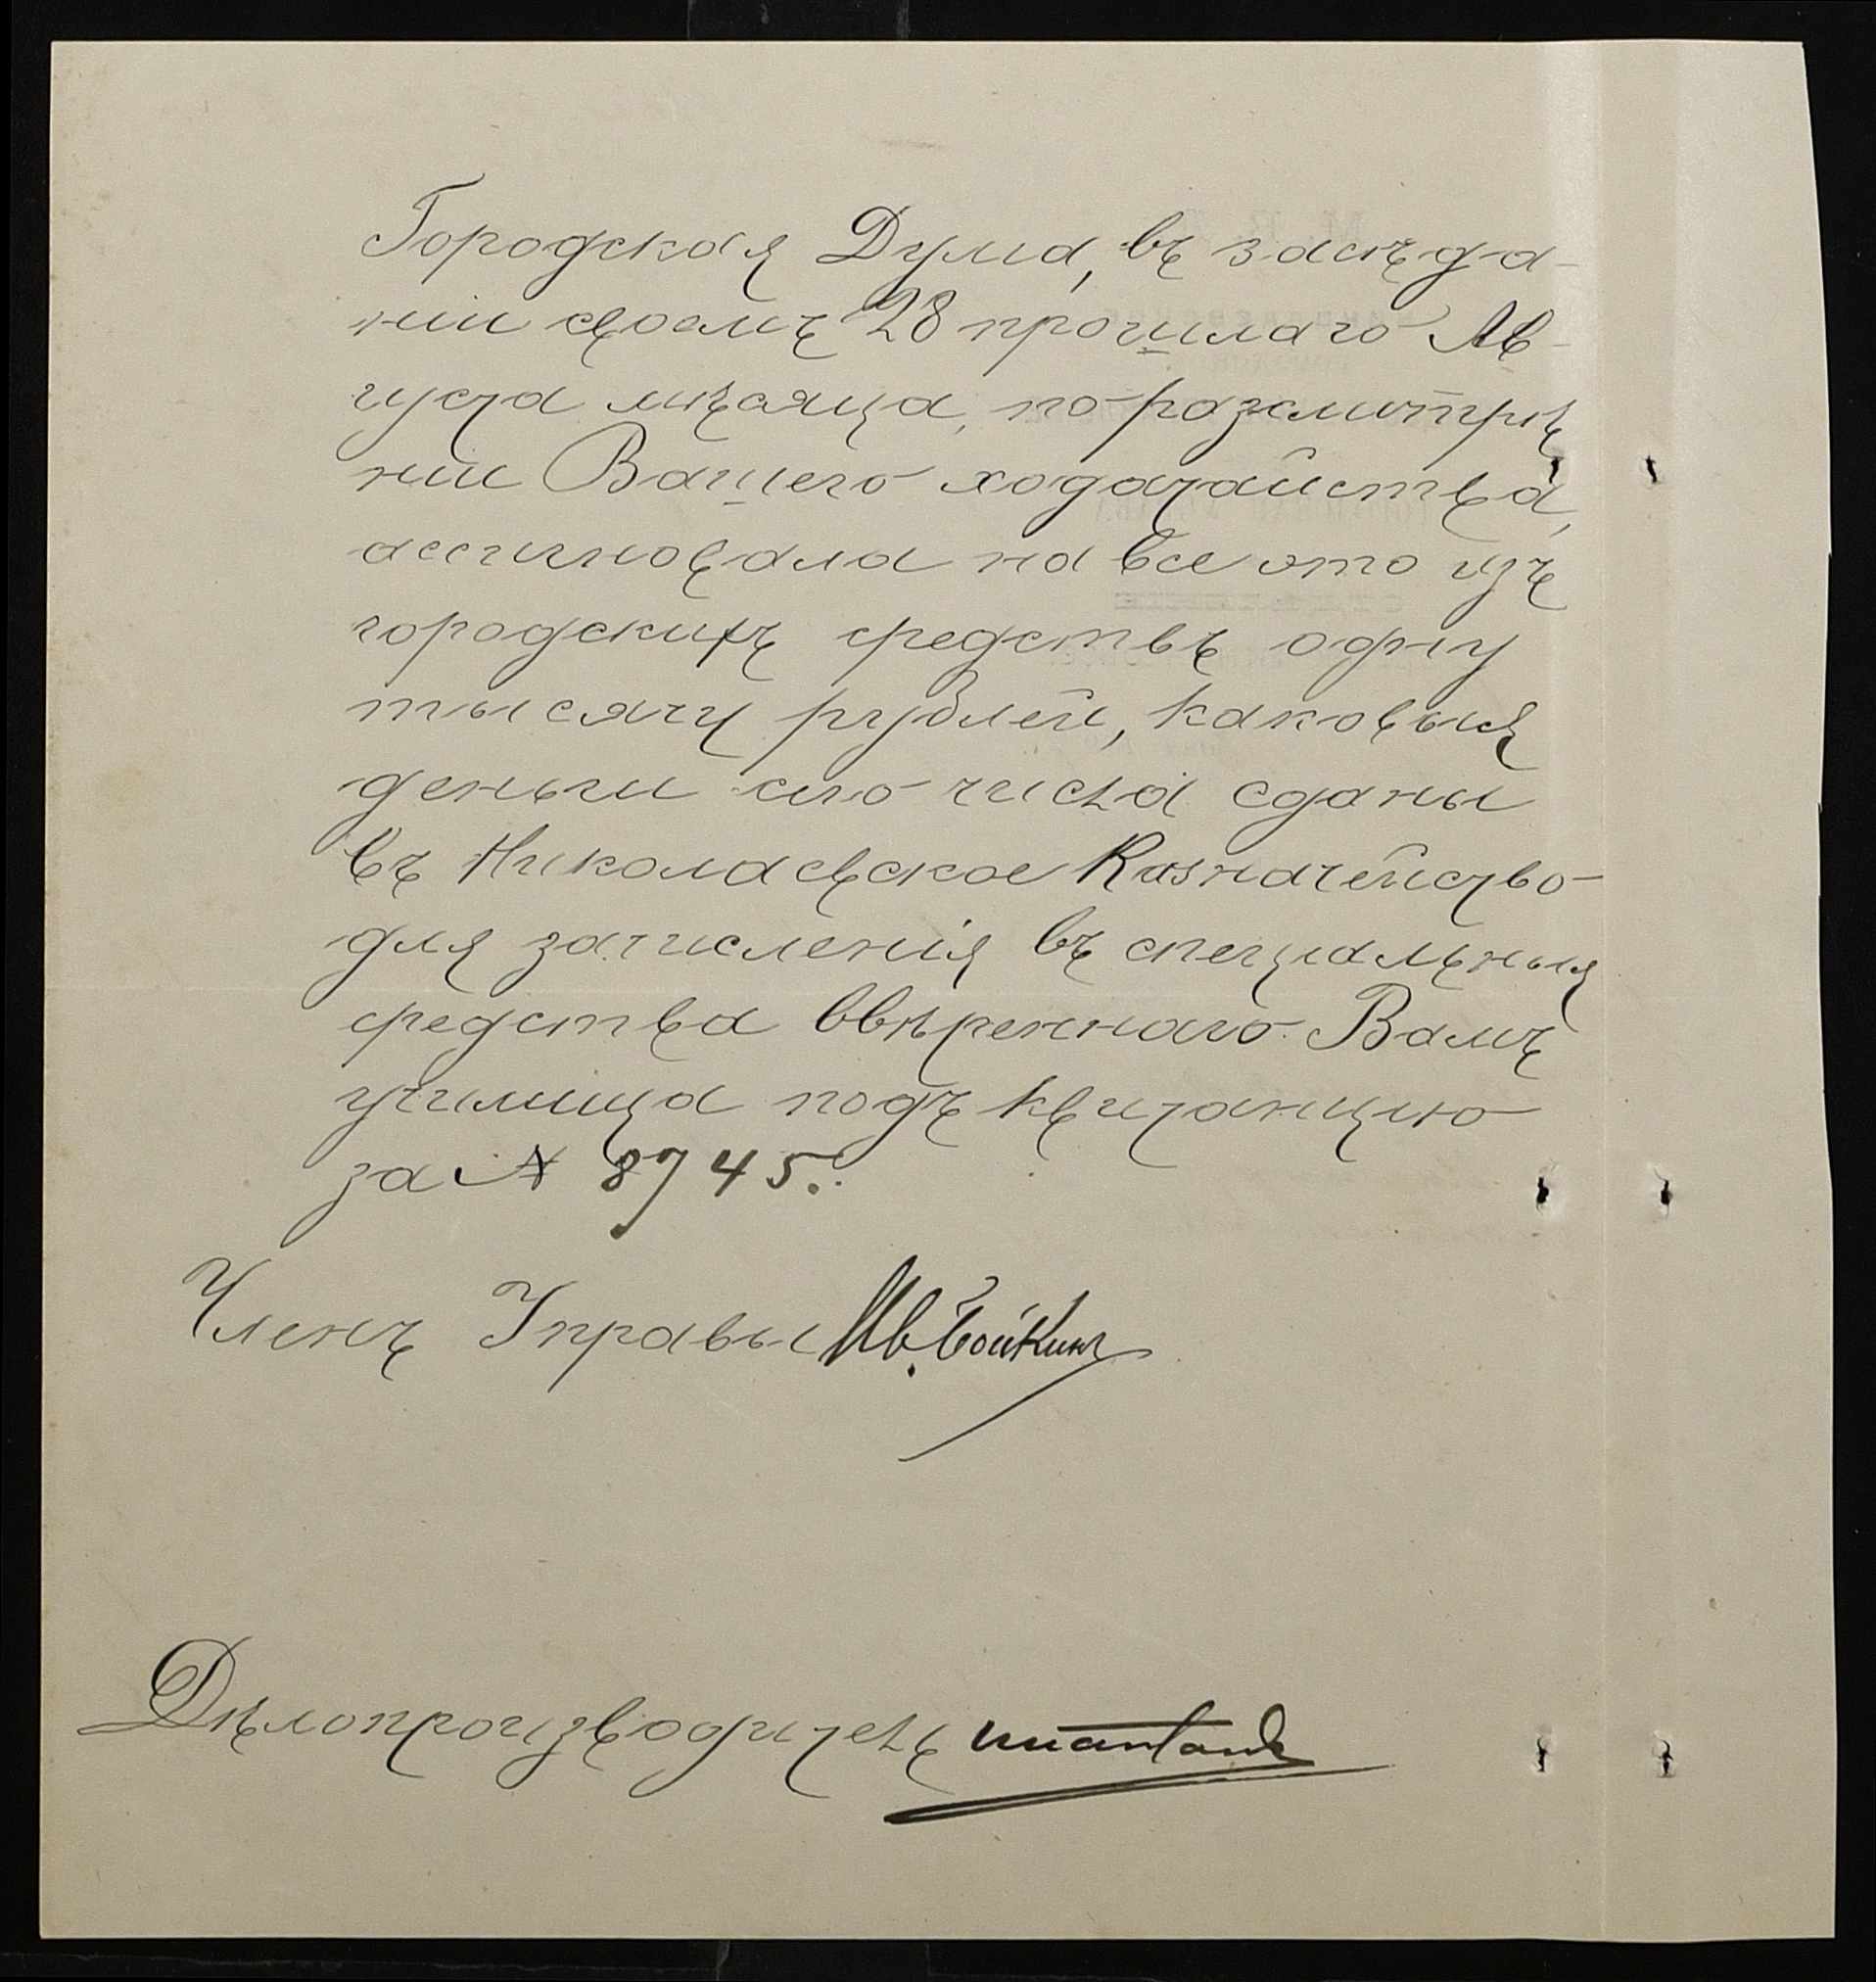 Городская Дума, въ засѣда-
нiи своемъ 28 прошлаго Ав-
густа мѣсяца, по разсмотрѣ
нiи Вашего ходатайства,
ассигновала на все это изъ
городскихъ средствъ одну
тысячу рублей, каковыя
деньги сего числа сданы
въ Николаевское Казначейство
для зачисленія въ спецiальныя
средства ввѣреннаго Вамъ
училища подъ квитанцію
за № 8745.
Членъ Управы Ив. Бойкинъ
Дѣлопроизводитель